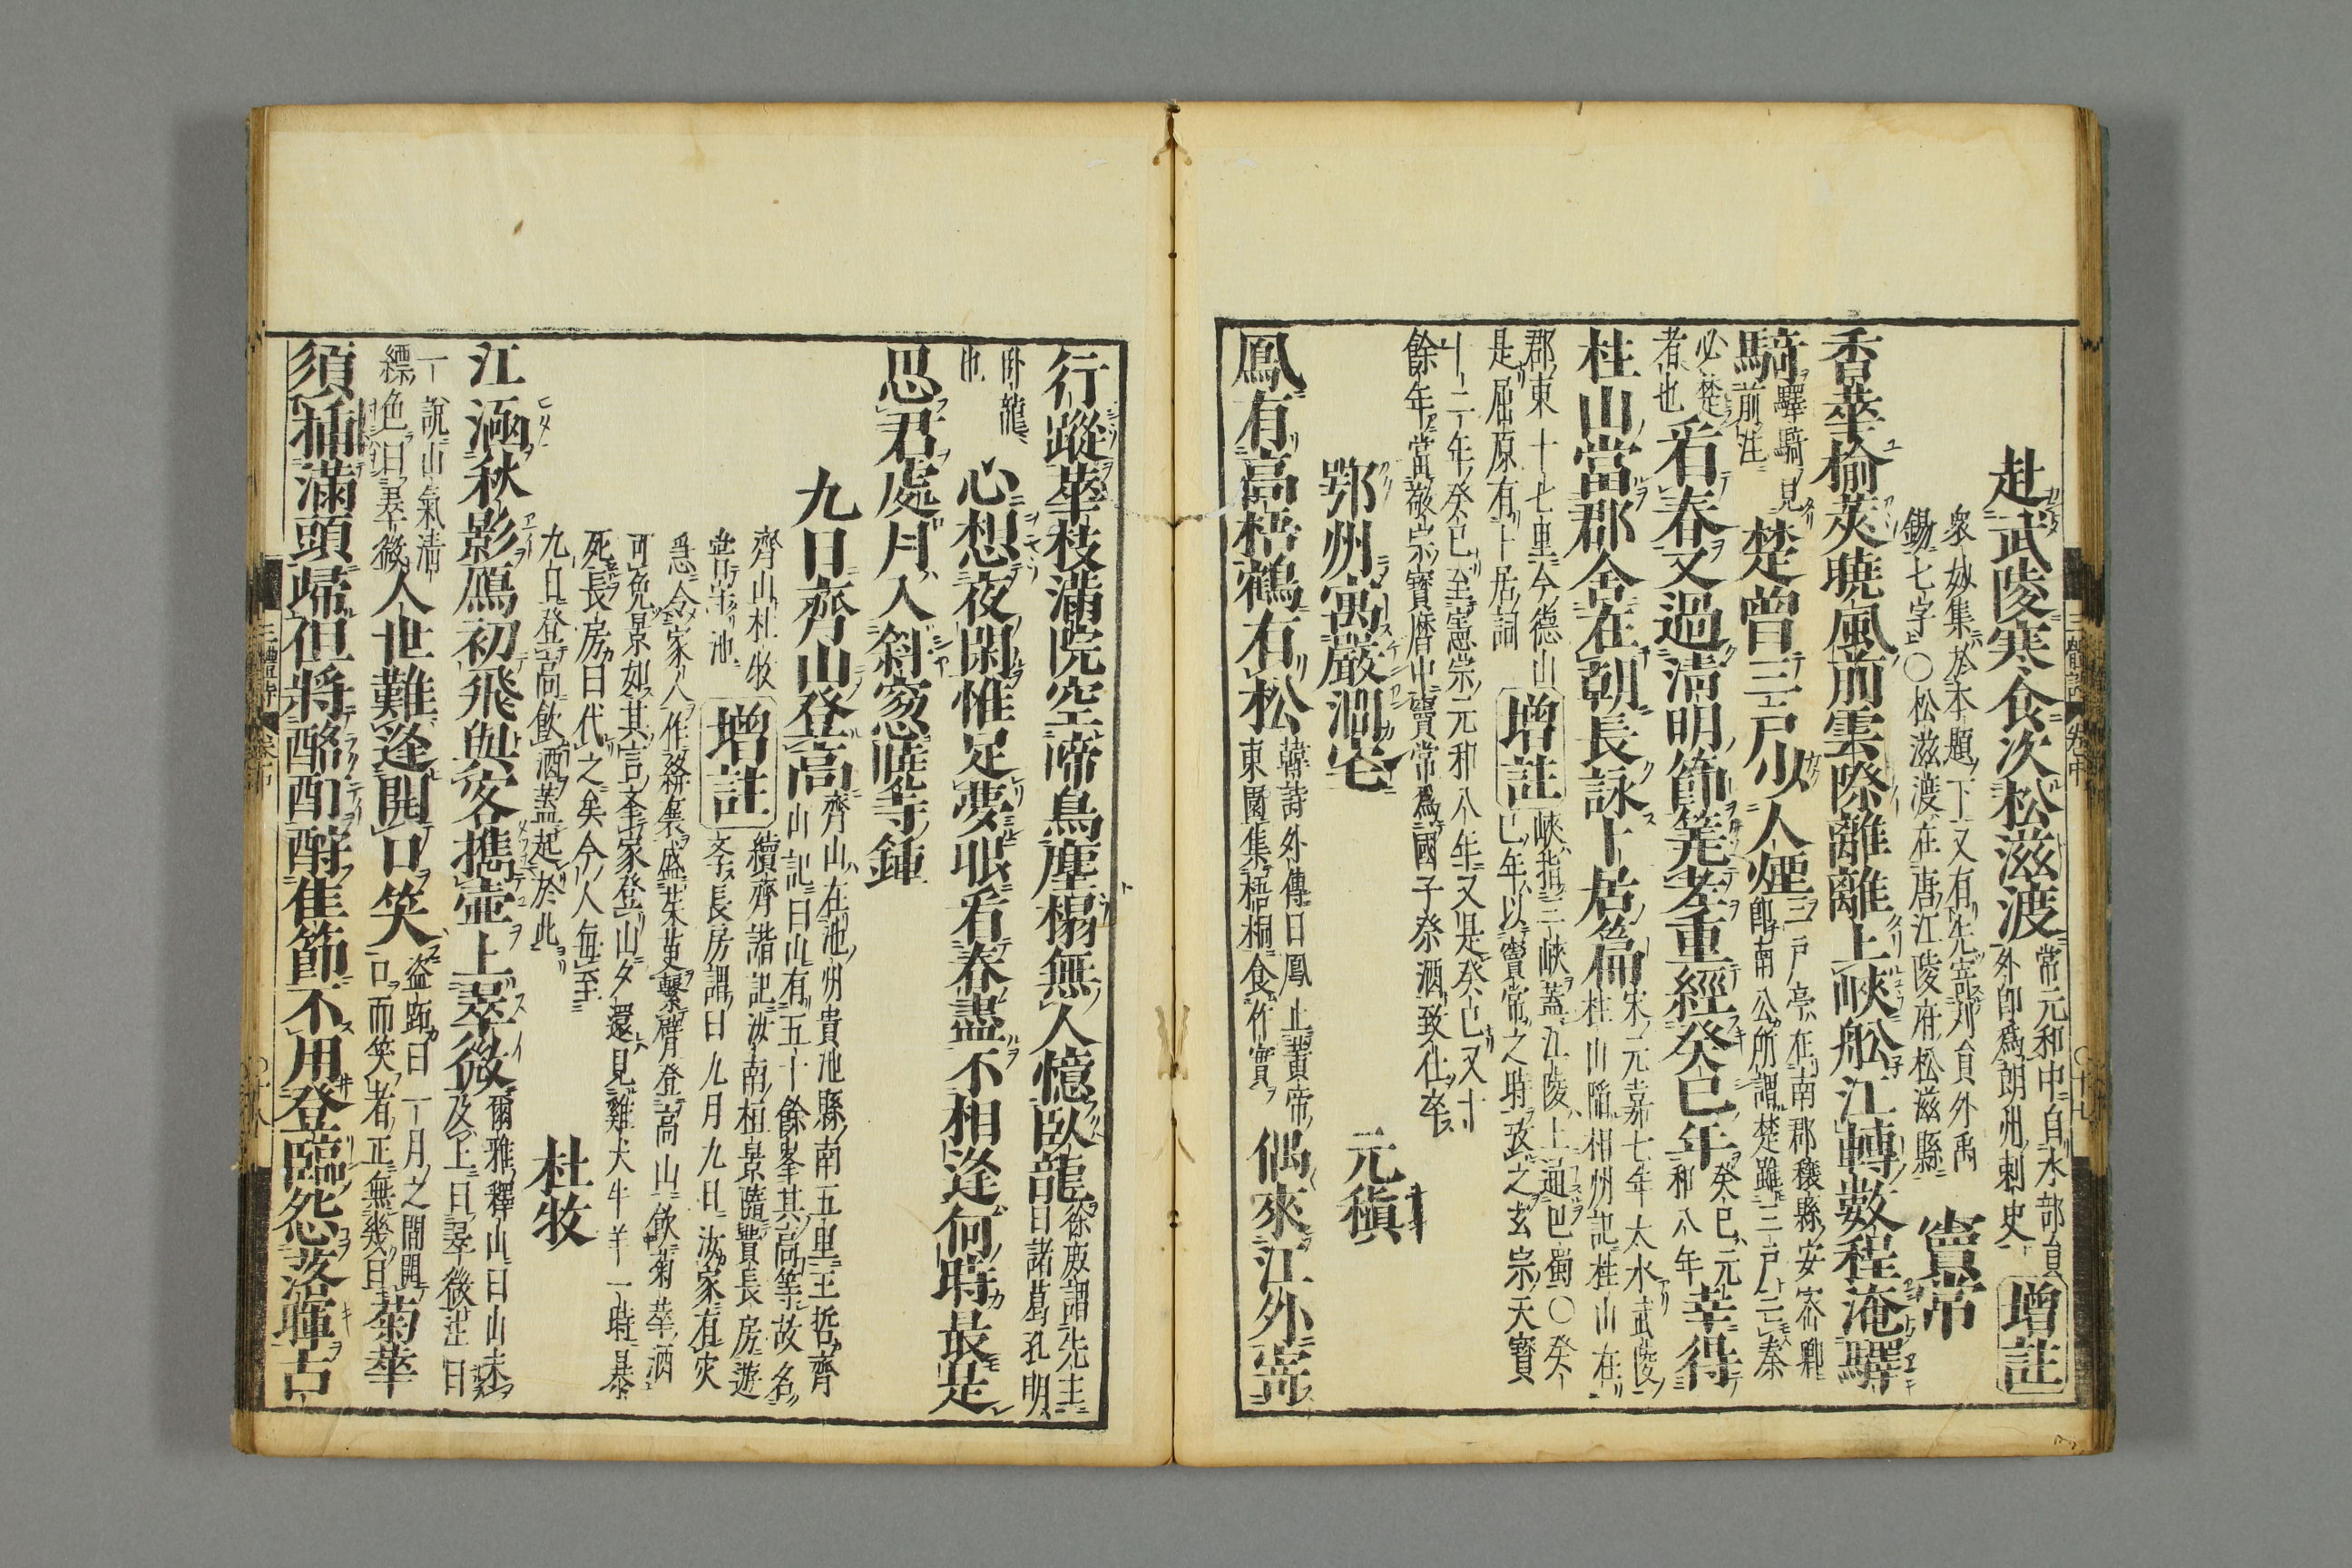 赴武陵寒食次松滋渡
常元和中自水部員
外郎爲朗州刺史
增註
衆妙集於本題下又有先寄劉員外禹
錫七字○松滋渡在唐江陵府松滋縣
竇常
杏華榆莢曉風前雲際離離上峽舩江轉數程淹驛
騎
驛騎見
前注
楚曾三戶少人煙
三戶亭在南郡穰縣安峇卿
即南公所謂楚雖三戶亡秦
必楚
者也
看春又過淸明節筭老重經癸巳年
癸巳元
和八年
幸得
桂山當郡舍在朝長詠卜居篇
宋元嘉七年大水武陵
桂山陷相州記桂山在
郡東十七里今德山
是屈原有卜居詞
增註
峽指三峽蓋江陵上通巴蜀○癸
巳年以竇常之時攷之玄宗天寶
十二年癸巳至憲宗元和八年又是癸巳又十
餘年當敬宗寶曆中竇常爲國子祭酒致仕卒
鄂州寓嚴澗宅
元稹
鳳有高梧鶴有松
韓詩外傳曰鳳止黃帝
東園集梧桐食竹實
偶來江外寄
行蹤華枝滿院空啼鳥塵榻無人憶臥龍
徐庶謂先主
曰諸葛孔明
卧龍
也
心想夜閑惟足夢眼看春盡不相逢何時最是
思君處月入斜窓曉寺鍾
九日齊山登高
齊山在池州貴池縣南五里王哲齊
山記曰山有五十餘峯其高等故名
齊山杜牧
嘗守池
增註
續齊諧記汝南桓景隨費長房遊
學長房謂曰九月九日汝家有灾
急令家人作絳囊盛茱萸繫臂登高山飲菊華酒
可免景如其言挙家登山夕還見雞犬牛羊一時暴
死長房曰代之矣今人每至
九日登高飲酒蓋起於此
杜牧
江涵秋影鴈初飛與客攜壺上翠微
爾雅釋山曰山未
及上曰翠微注曰
一說山氣淸
縹色曰翠微
人世難逢開口笑
盜跖曰一月之間開
口而笑者正無幾日
菊華
須插滿頭歸但將酩酊酧佳節不用登臨怨落暉古
三體詩 卷中 ○十七
三體詩 卷中 ○十八